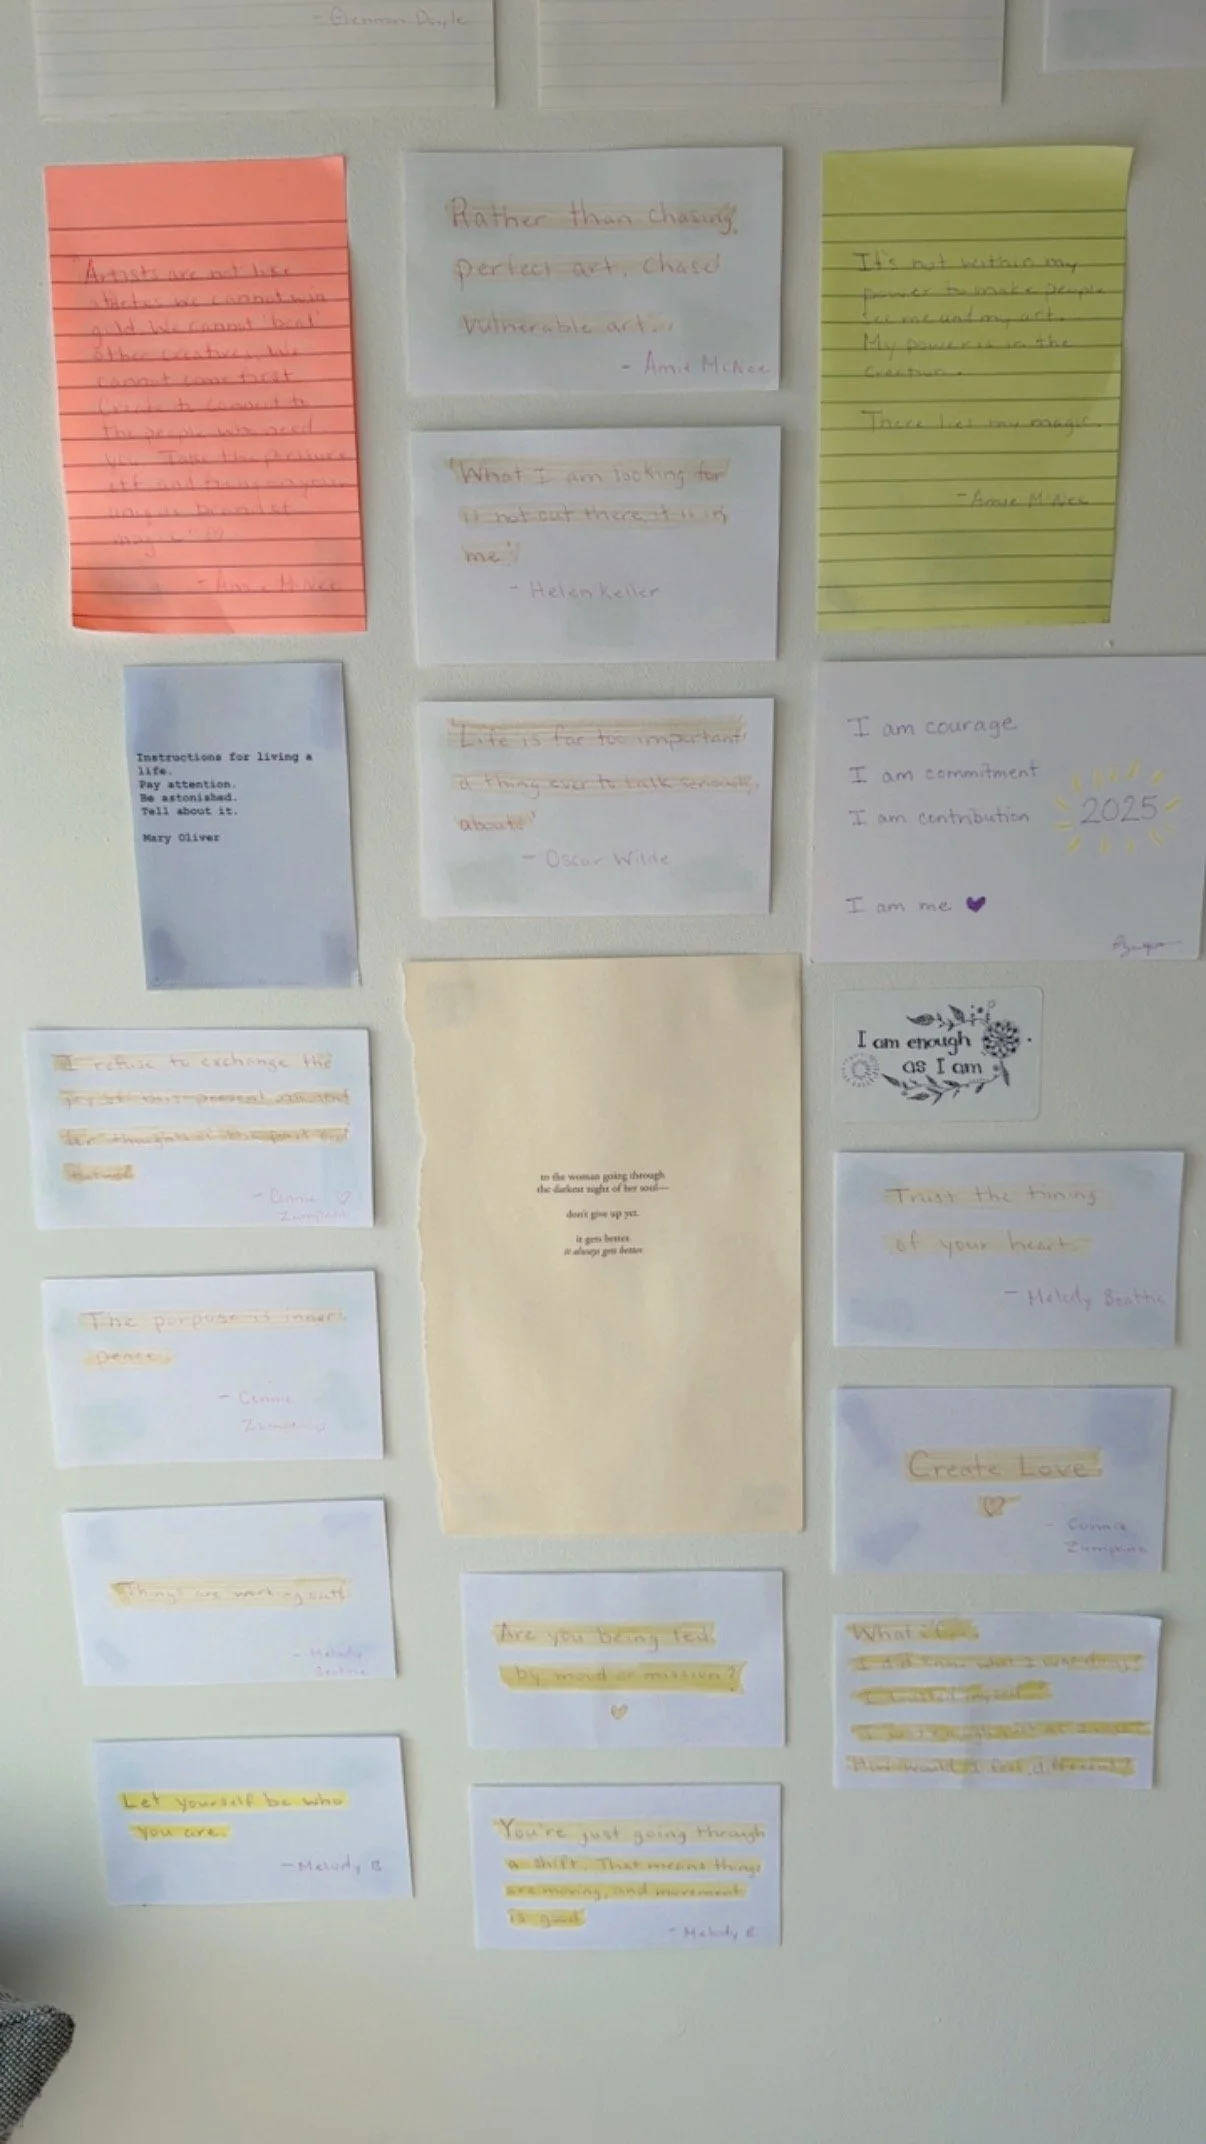 - Glennon Doyle
"Artists are not like
athletes. We cannot win
gold. We cannot 'beat'
other creatives. We
cannot come first.
Create to connect to
the people who need
you. Take the pressure
off, and focus on your
unique brand of
magic." ♡
- Amie McNee
Rather than chasing
perfect art, chase
vulnerable art...
- Amie McNee
It's not within my
power to make people
see me and my art.
My power is in the
creation.
There lies my magic.
- Amie McNee
"What I am looking for
is not out there, it is in
me"
- Helen Keller
Instructions for living a
life.
Pay attention.
Be astonished.
Tell about it.
Mary Oliver
Life is far too important
a thing ever to talk seriously
about"
- Oscar Wilde
I am courage
I am commitment
I am contribution
2025
I am me 💜
I am enough
as I am
I refuse to exchange the
joy of this present moment
for thoughts of the past
- Connie ♡
to the woman going through
the darkest night of her soul—
don't give up yet.
it gets better.
it always gets better.
Trust the timing
of your heart.
- Melody Beattie
The purpose is inner
peace.
- Connie
Create Love
♡
- Connie
Things are working out
- Melody
Beattie
Are you being led
by mood or mission?
♡
What if...
I did know what I was doing
I trusted myself
How would I feel different?
Let yourself be who
you are.
- Melody B
You're just going through
a shift. That means things
are moving, and movement
is good
- Melody B